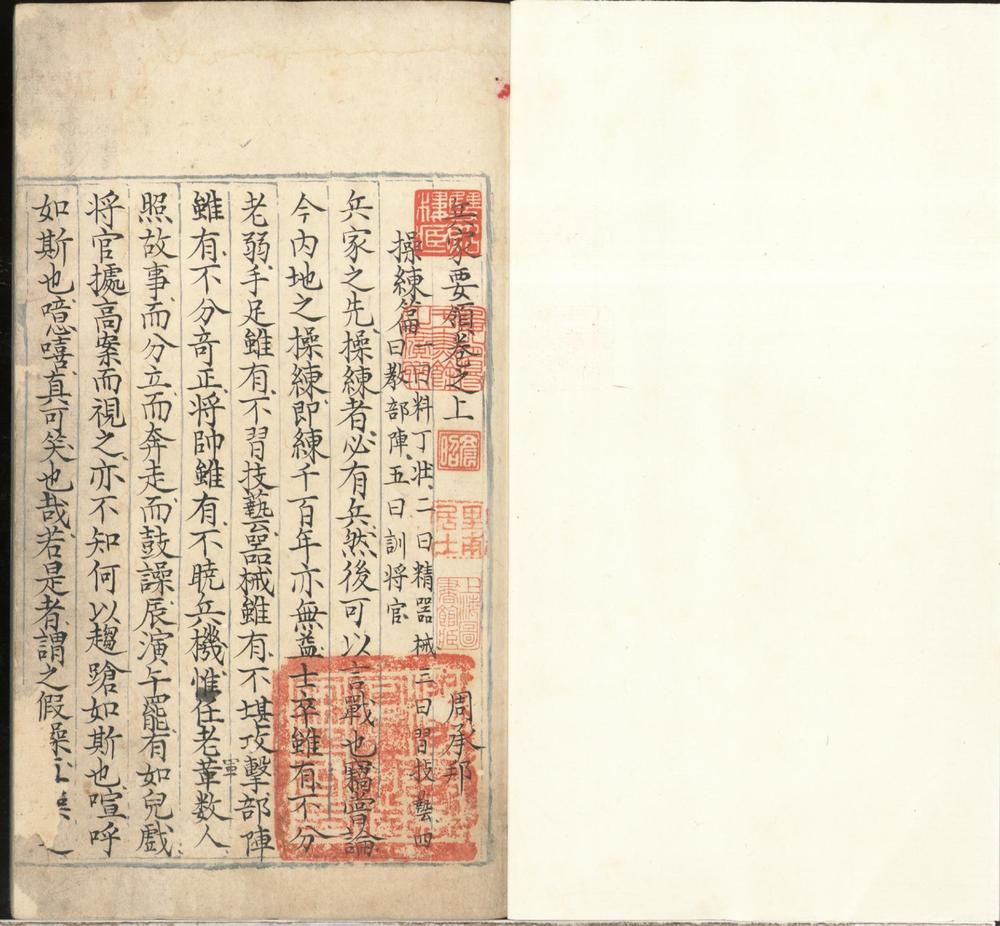 兵家要領卷之上 周承邦
操練篇 一曰料丁壯二曰精器械三曰習技藝四
曰教部陣五曰訓將官
兵家之先操練者必有兵然後可以言戰也竊嘗論
今內地之操練即練千百年亦無益士卒雖有不分
老弱手足雖有不習技藝器械雖有不堪攻擊部陣
雖有不分奇正將帥雖有不曉兵機惟任老革数人
軍
照故事而分立而奔走而鼓譟辰演午罷有如兒戲
將官據高案而視之亦不知何以趨蹌如斯也喧呼
如斯也噫嘻真可笑也哉若是者謂之假操
上海圖書館藏